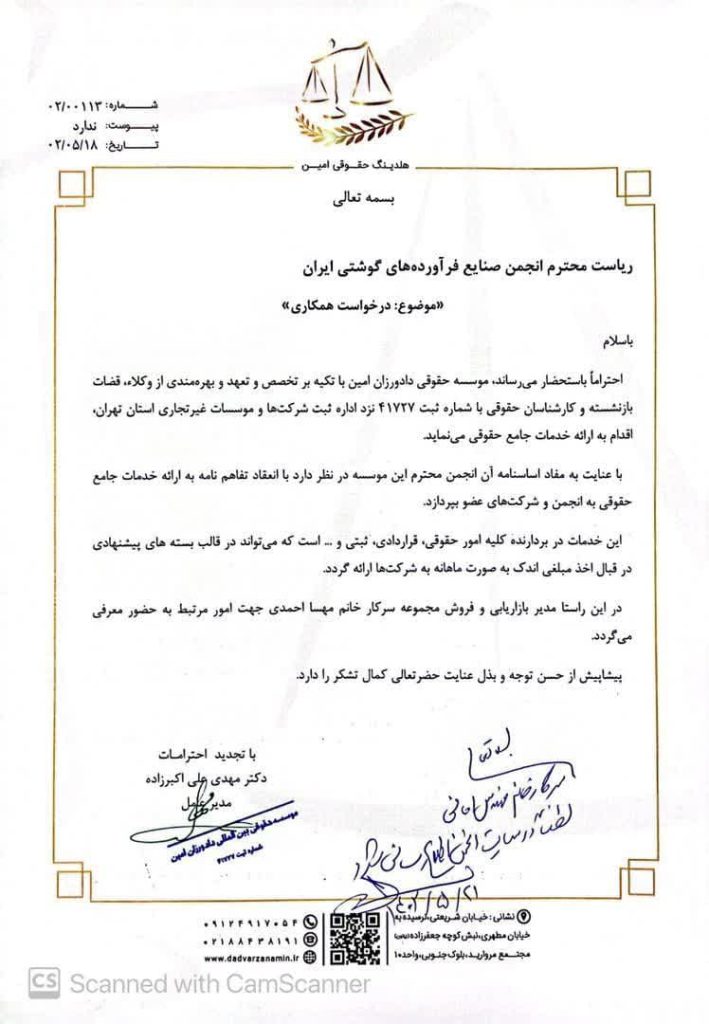 شماره: ۰۲/۰۰۱۱۳
پیوست: ندارد
تاریخ: ۰۲/۰۵/۱۸
هلدینگ حقوقی امین
بسمه تعالی
ریاست محترم انجمن صنایع فرآورده‌های گوشتی ایران
«موضوع: درخواست همکاری»
باسلام
احتراماً باستحضار می‌رساند، موسسه حقوقی دادورزان امین با تکیه بر تخصص و تعهد و بهره‌مندی از وکلاء، قضات
بازنشسته و کارشناسان حقوقی با شماره ثبت ۴۱۷۲۷ نزد اداره ثبت شرکت‌ها و موسسات غیرتجاری استان تهران،
اقدام به ارائه خدمات جامع حقوقی می‌نماید.
با عنایت به مفاد اساسنامه آن انجمن محترم این موسسه در نظر دارد با انعقاد تفاهم نامه به ارائه خدمات جامع
حقوقی به انجمن و شرکت‌های عضو بپردازد.
این خدمات در بردارنده کلیه امور حقوقی، قراردادی، ثبتی و ... است که می‌تواند در قالب بسته های پیشنهادی
در قبال اخذ مبلغی اندک به صورت ماهانه به شرکت‌ها ارائه گردد.
در این راستا مدیر بازاریابی و فروش مجموعه سرکار خانم مهسا احمدی جهت امور مرتبط به حضور معرفی
می‌گردد.
پیشاپیش از حسن توجه و بذل عنایت حضرتعالی کمال تشکر را دارد.
با تجدید احترامات
دکتر مهدی علی اکبرزاده
مدیر عمل
موسسه حقوقی بین المللی دادورزان امین
شماره ثبت ۴۱۷۲۷
سرکار خانم مهندس
لطفاً در سایت انجمن
۱۴۰۲/۵/۲۱
نشانی: خیابان شریعتی، نرسیده به
خیابان مطهری، نبش کوچه جعفرزاده
مجتمع مروارید، بلوک جنوبی، واحد۱۰
۰۹۱۲۴۹۱۷۰۵۴
۰۲۱۸۸۴۳۸۱۹۱
www.dadvarzanamin.ir
CS Scanned with CamScanner